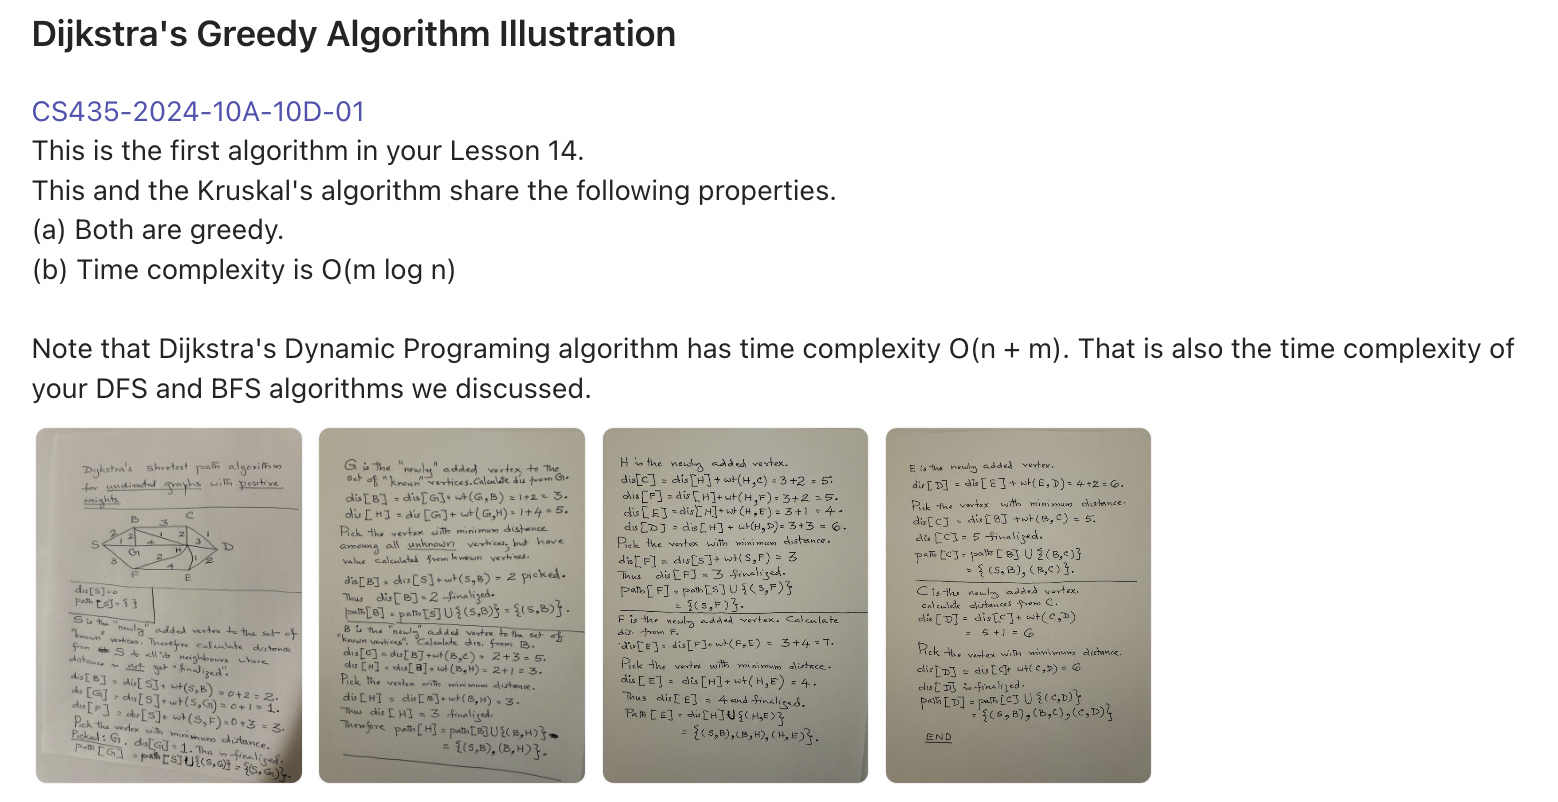 Dijkstra's Greedy Algorithm Illustration
CS435-2024-10A-10D-01
This is the first algorithm in your Lesson 14.
This and the Kruskal's algorithm share the following properties.
(a) Both are greedy.
(b) Time complexity is O(m log n)
Note that Dijkstra's Dynamic Programing algorithm has time complexity O(n + m). That is also the time complexity of
your DFS and BFS algorithms we discussed.
Dijkstra's shortest path algorithm
for undirated graphs with positive
weights
B 3 C
2 1 2 1 2 1
S 4 H 3 D
G 2
3 4 1 2
F E
dis[S]=0
path[S]={ }
S is the "newly" added vertex to the set of
"known" vertices. Therefore calculate distance
from S to all its neighbours where
distance is not yet "finalized".
dis[B] = dis[S] + wt(S,B) = 0+2 = 2.
dis[G] = dis[S]+wt(S,G) = 0+1 = 1.
dis[F] = dis[S]+ wt(S,F)=0+3 = 3.
Pick the vertex with minimum distance.
Picked: G, dis[G]=1. This is finalized.
path[G] = path[S]U{(S,G)} = {(S,G)}.
G is the "newly" added vertex to the
set of "known" vertices. Calculate dis from G.
dis[B] = dis[G]+ wt(G,B) = 1+2 = 3.
dis[H] = dis[G]+ wt(G,H) = 1+4 = 5.
Pick the vertex with minimum distance
among all unknown vertices, but have
value calculated from known vertices.
dis[B] = dis[S]+wt(S,B) = 2 picked.
Thus dis[B]=2 finalized.
path[B] = path[S]U{(S,B)} = {(S,B)}.
B is the "newly" added vertex to the set of
"known vertices". Calculate dis. from B.
dis[C] = dis[B]+wt(B,C) = 2+3 = 5.
dis[H] = dis[B]+wt(B,H) = 2+1 = 3.
Pick the vertex with minimum distance.
dis[H] = dis[B]+wt(B,H) = 3.
Thus dis[H] = 3 finalized.
Therefore path[H] = path[B]U{(B,H)}
= {(S,B), (B,H)}.
H is the newly added vertex.
dis[C] = dis[H]+ wt(H,C) = 3+2 = 5.
dis[F] = dis[H]+wt(H,F) = 3+2 = 5.
dis[E] = dis[H]+wt(H,E) = 3+1 = 4.
dis[D] = dis[H] + wt(H,D)= 3+3 = 6.
Pick the vertex with minimum distance.
dis[F] = dis[S]+ wt(S,F) = 3
Thus dis[F] = 3 finalized.
path[F] = path[S]U{(S,F)}
= {(S,F)}.
F is the newly added vertex. Calculate
dis from F.
dis[E] = dis[F]+wt(F,E) = 3+4 = 7.
Pick the vertex with minimum distace.
dis[E] = dis[H]+wt(H,E) = 4.
Thus dis[E] = 4 and finalized.
Path[E] = dis[H]U{(H,E)}
= {(S,B),(B,H), (H,E)}.
E is the newly added vertex.
dis[D] = dis[E]+wt(E,D) = 4+2 = 6.
Pick the vertex with minimum distance.
dis[C] = dis[B] +wt(B,C) = 5.
dis[C] = 5 finalized.
path[C] = path[B] U{(B,C)}
= {(S,B), (B,C)}.
C is the newly added vertex.
calculate distances from C.
dis[D] = dis[C]+ wt(C,D)
= 5+1 = 6
Pick the vertex with minimum distance.
dis[D] = dis[C]+ wt(C,D) = 6
dis[D] is finalized.
path[D] = path[C]U{(C,D)}
= {(S,B),(B,C),(C,D)}
END